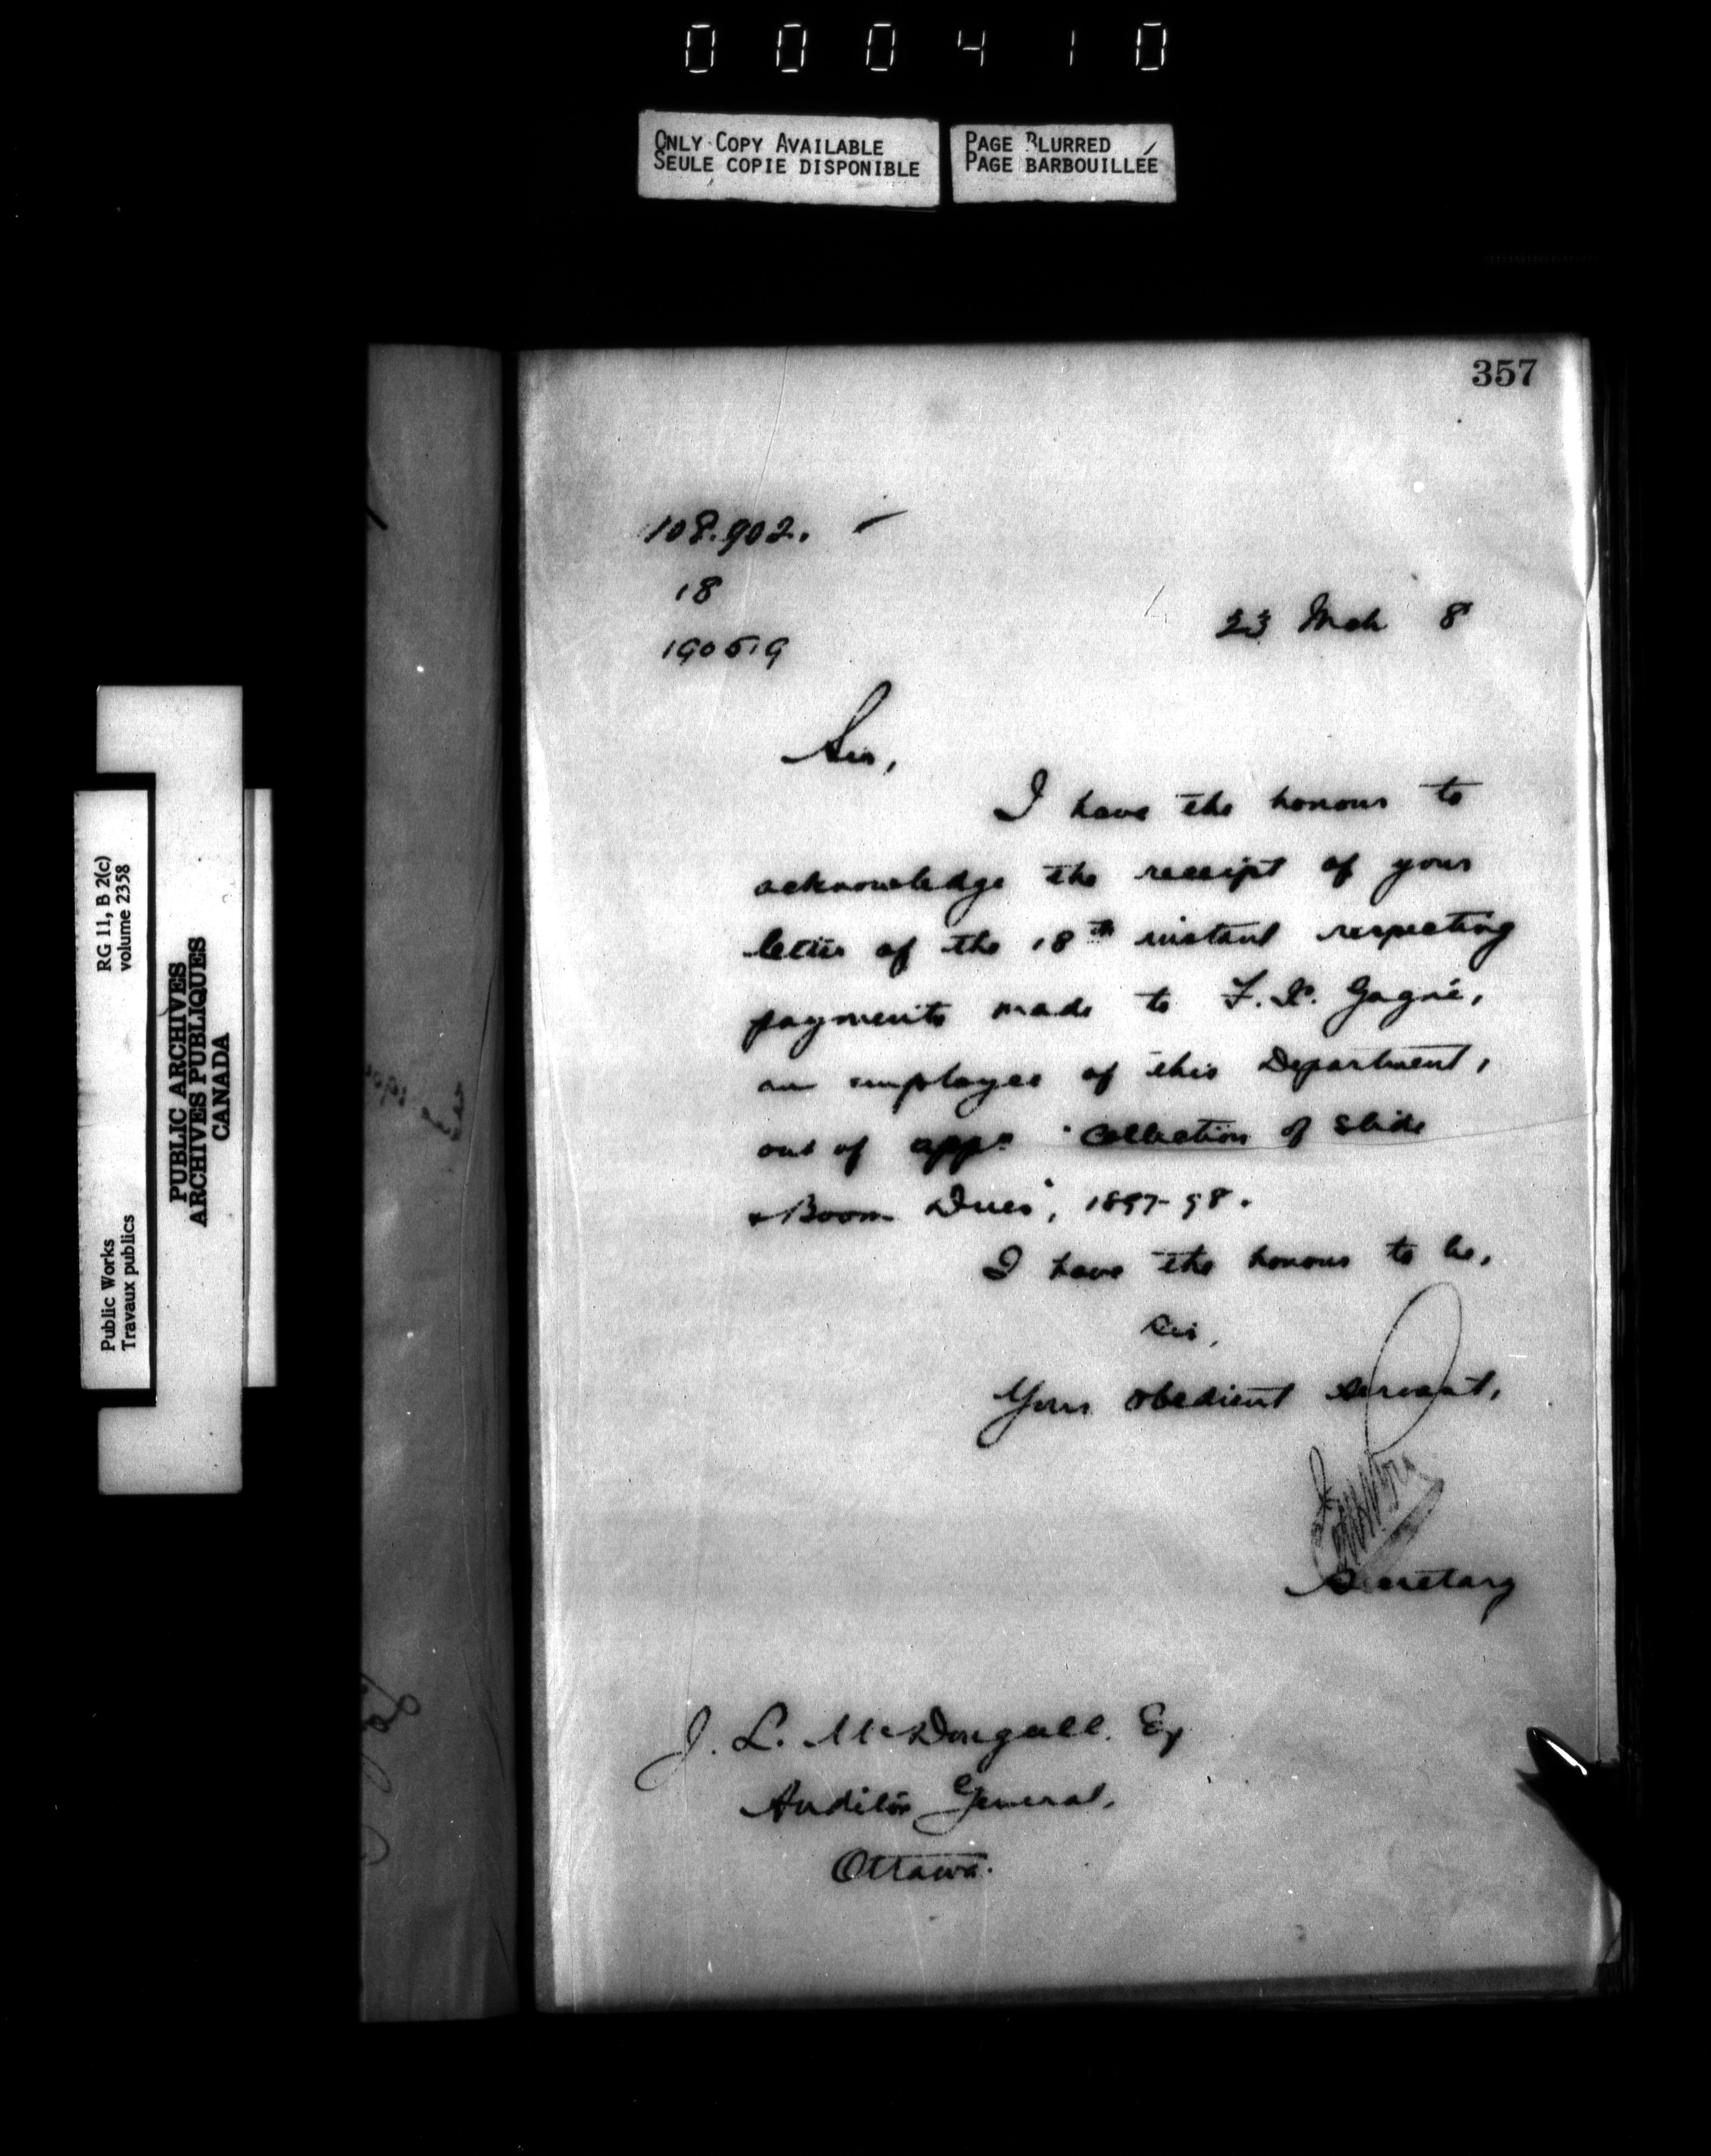 000410
ONLY COPY AVAILABLE
SEULE COPIE DISPONIBLE
PAGE BLURRED
PAGE BARBOUILLÉE
357
108.902.
18
190519
23 Mch 8
Sir,
I have the honour to
acknowledge the receipt of your
letter of the 18th instant respecting
payments made to F. X. Gagné,
an employee of this Department,
out of appn "Collection of Slide
& Boom Dues", 1897-98.
I have the honour to be,
Sir,
Your obedient servant,
Secretary
J. L. McDougall. Esq
Auditor General,
Ottawa.
RG 11, B 2(c)
volume 2358
PUBLIC ARCHIVES
ARCHIVES PUBLIQUES
CANADA
Public Works
Travaux publics